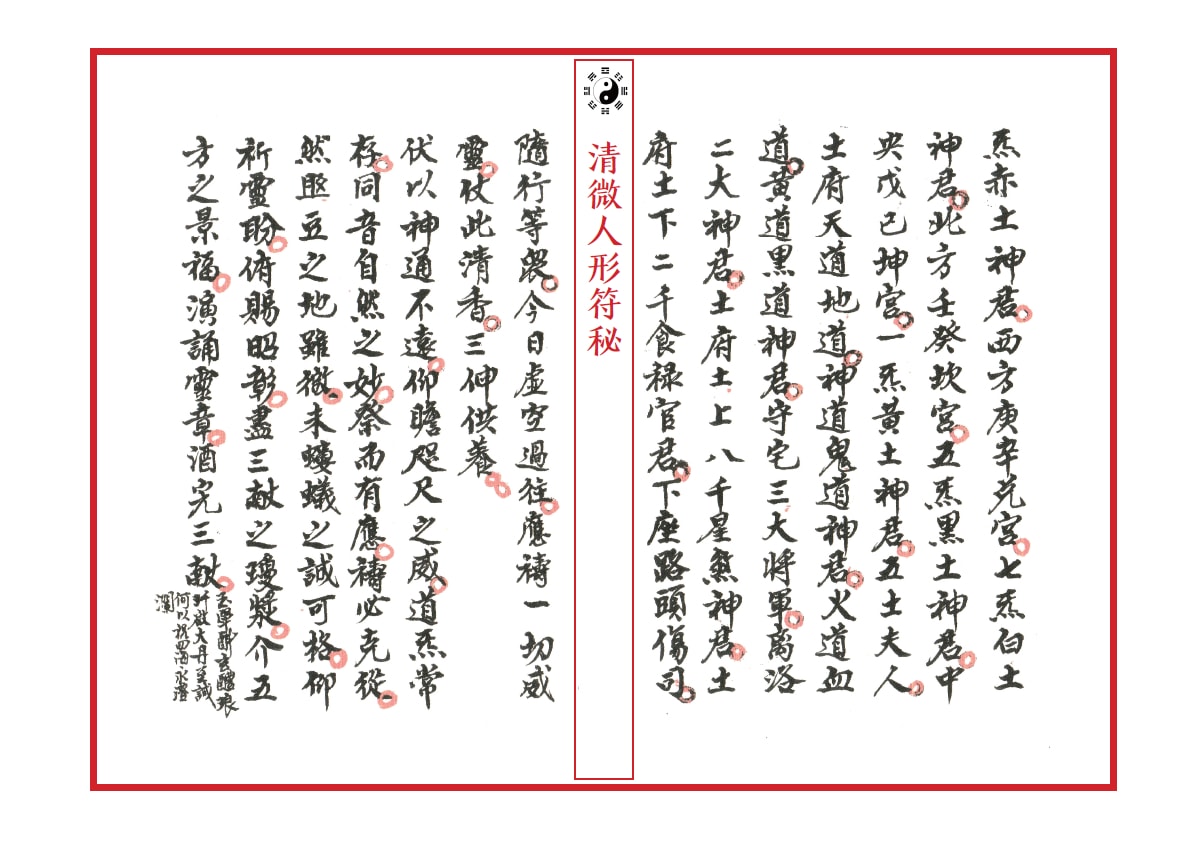 炁赤土神君西方庚辛兌宮七炁白土
神君北方壬癸坎宮五炁黑土神君中
央戊己坤宮一炁黃土神君五土夫人
土府天道地道神道鬼道神君火道血
道黃道黑道神君守宅三大將軍离洛
二大神君土府土上八千星煞神君土
府土下二千食祿官君下座路頭傷司
清微人形符秘
隨行等眾今日虛空過往應禱一切威
靈仗此清香三伸供養
伏以神通不遠仰瞻咫尺之威道炁常
存同音自然之妙祭而有應禱必克從
然壓豆之地雖微未螻蟻之誠可格仰
祈靈盼俯賜昭彰盡三献之瓊漿介五
方之景福演誦靈章酒完三献